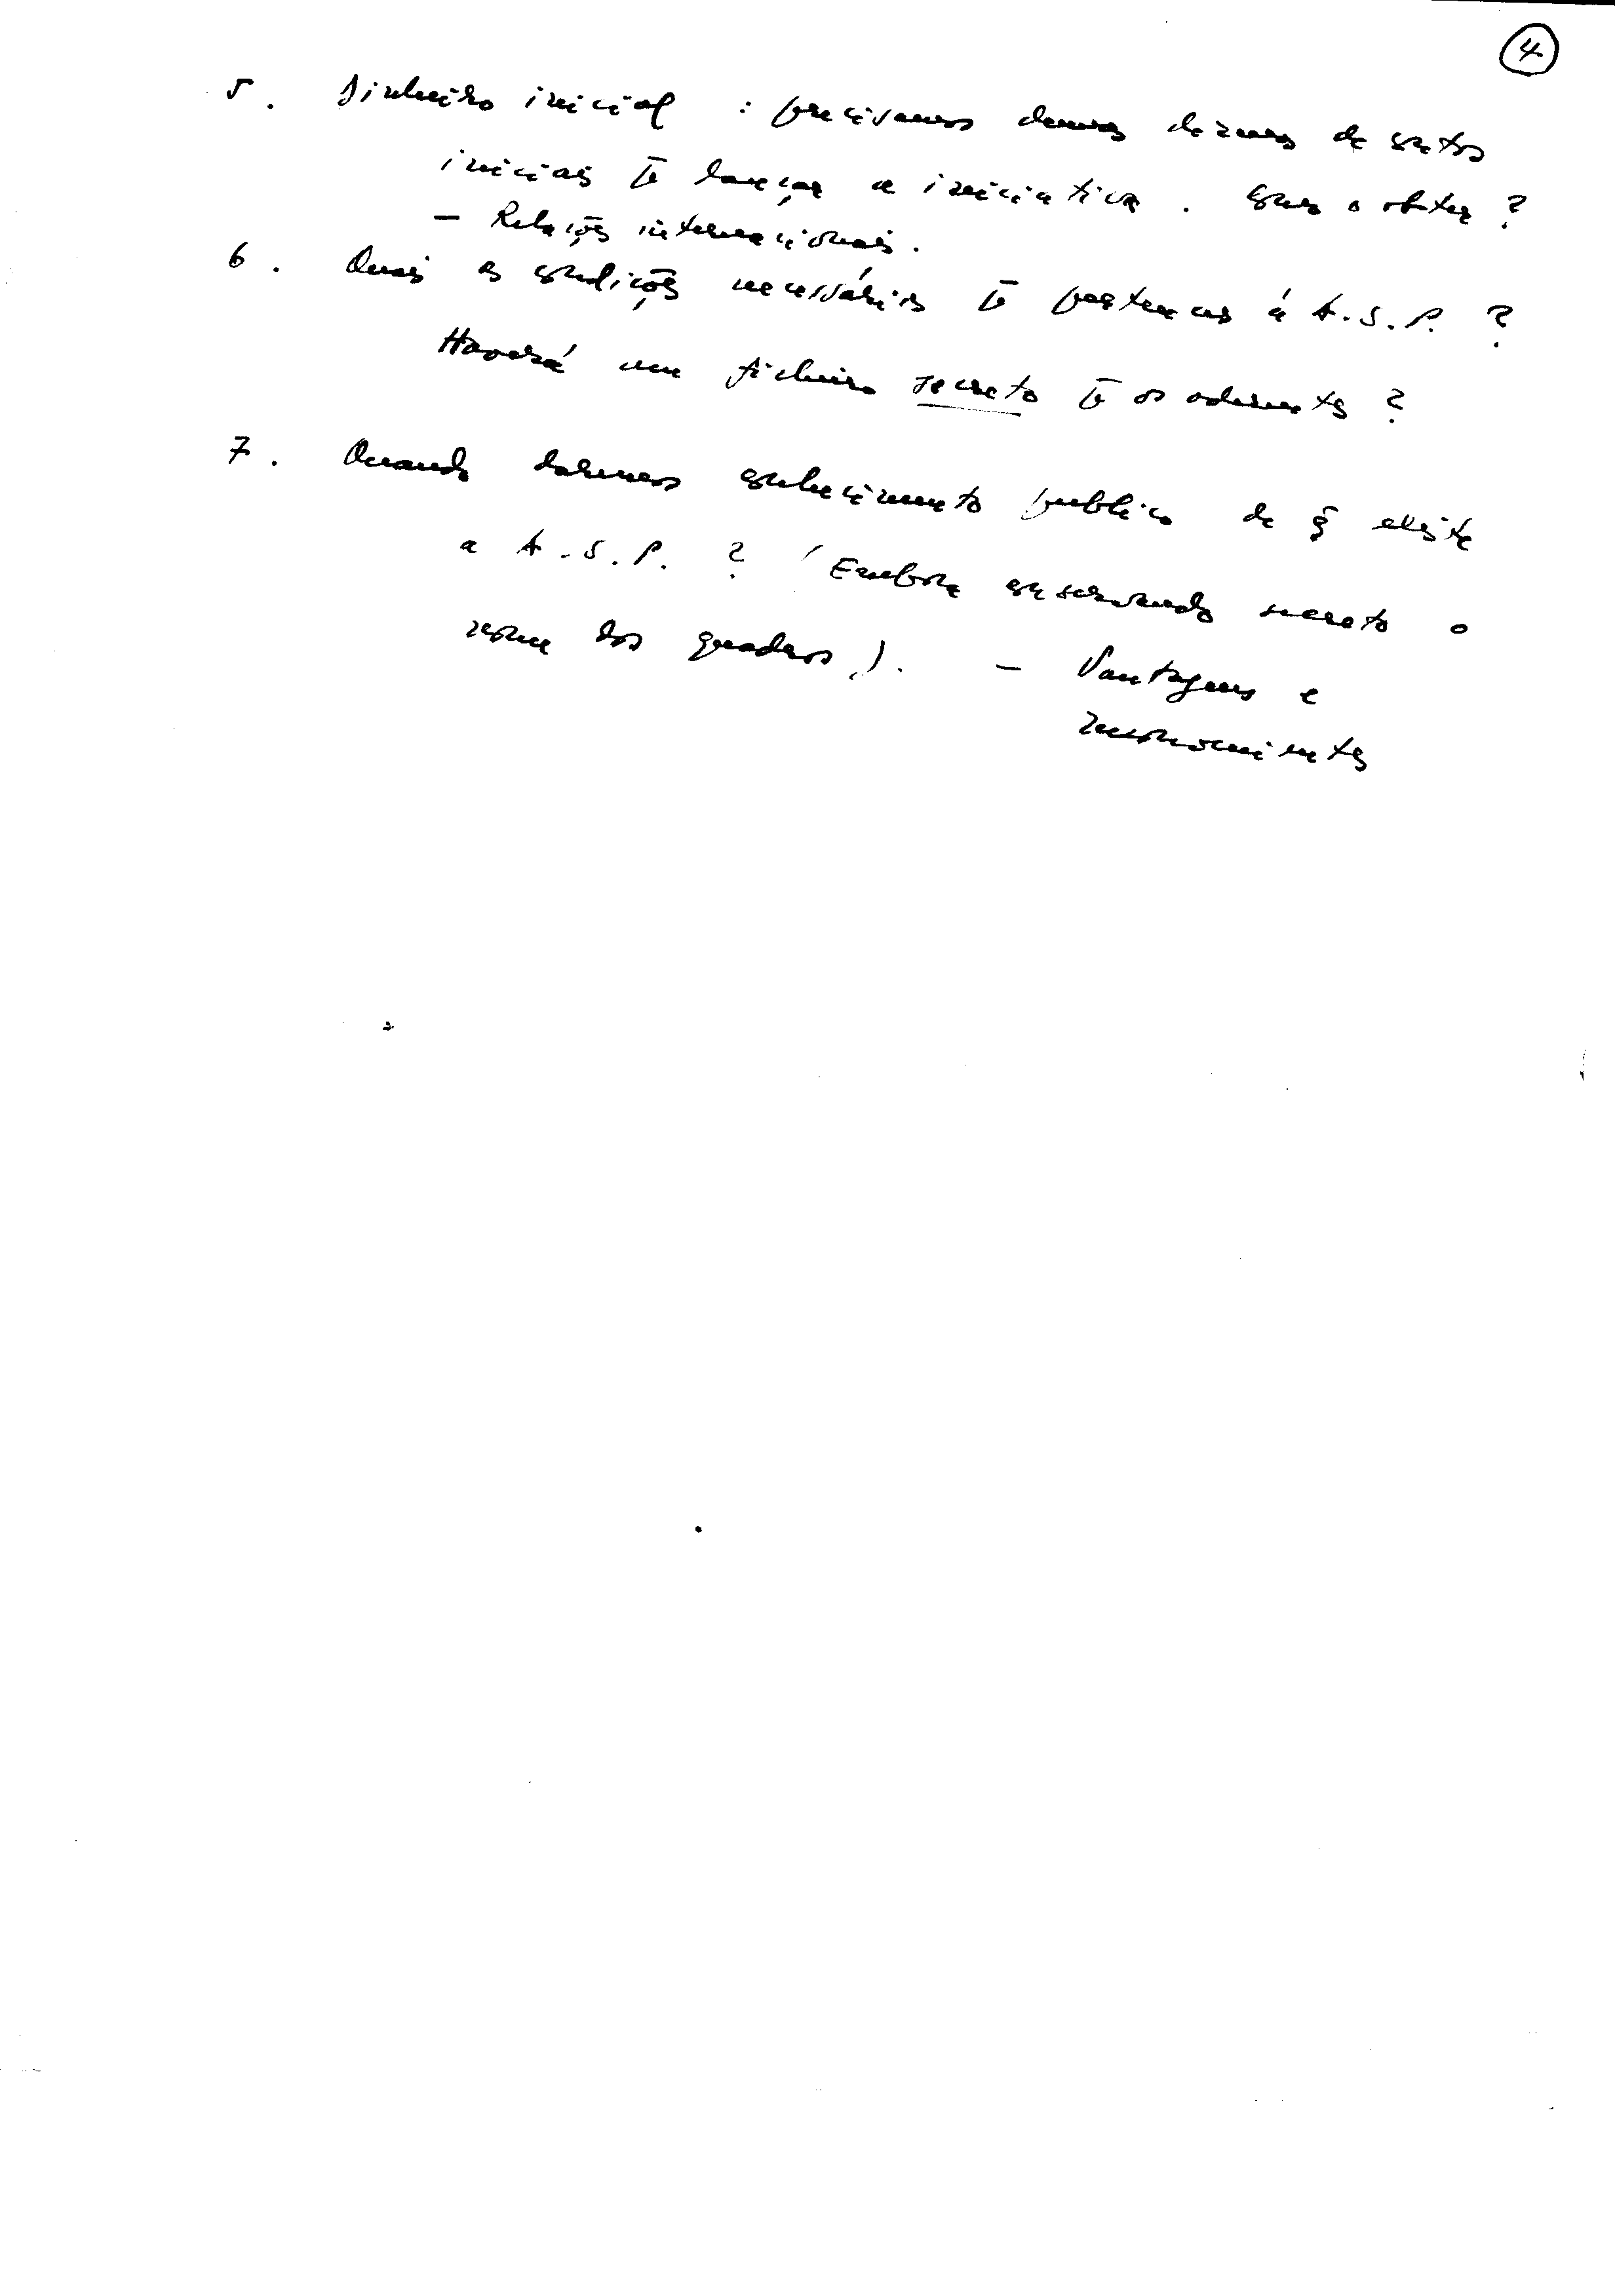 4
5. Dinheiro inicial : precisamos dumas dezenas de contos
iniciais p̄ lançar a iniciativa. Como o obter ?
- Relações internacionais.
6. Quais as condições necessárias p̄ pertencer á A.S.P. ?
Haverá um ficheiro secreto p̄ os aderentes ?
7. Quando daremos conhecimento publico de q̄ existe
a A.S.P. ? (Embora conservando secreto o
nome dos quadros). - Vantagens e
Inconvenientes